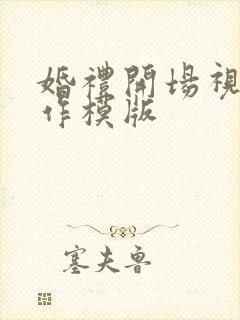 婚禮開場視
作模版
塞夫魯